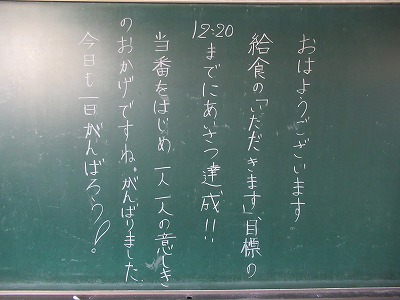 おはようございます
給食の「いただきます」目標の
12:20までにあいさつ達成!!
当番をはじめ一人一人の意しき
のおかげですね。がんばりました
今日も一日がんばろう!